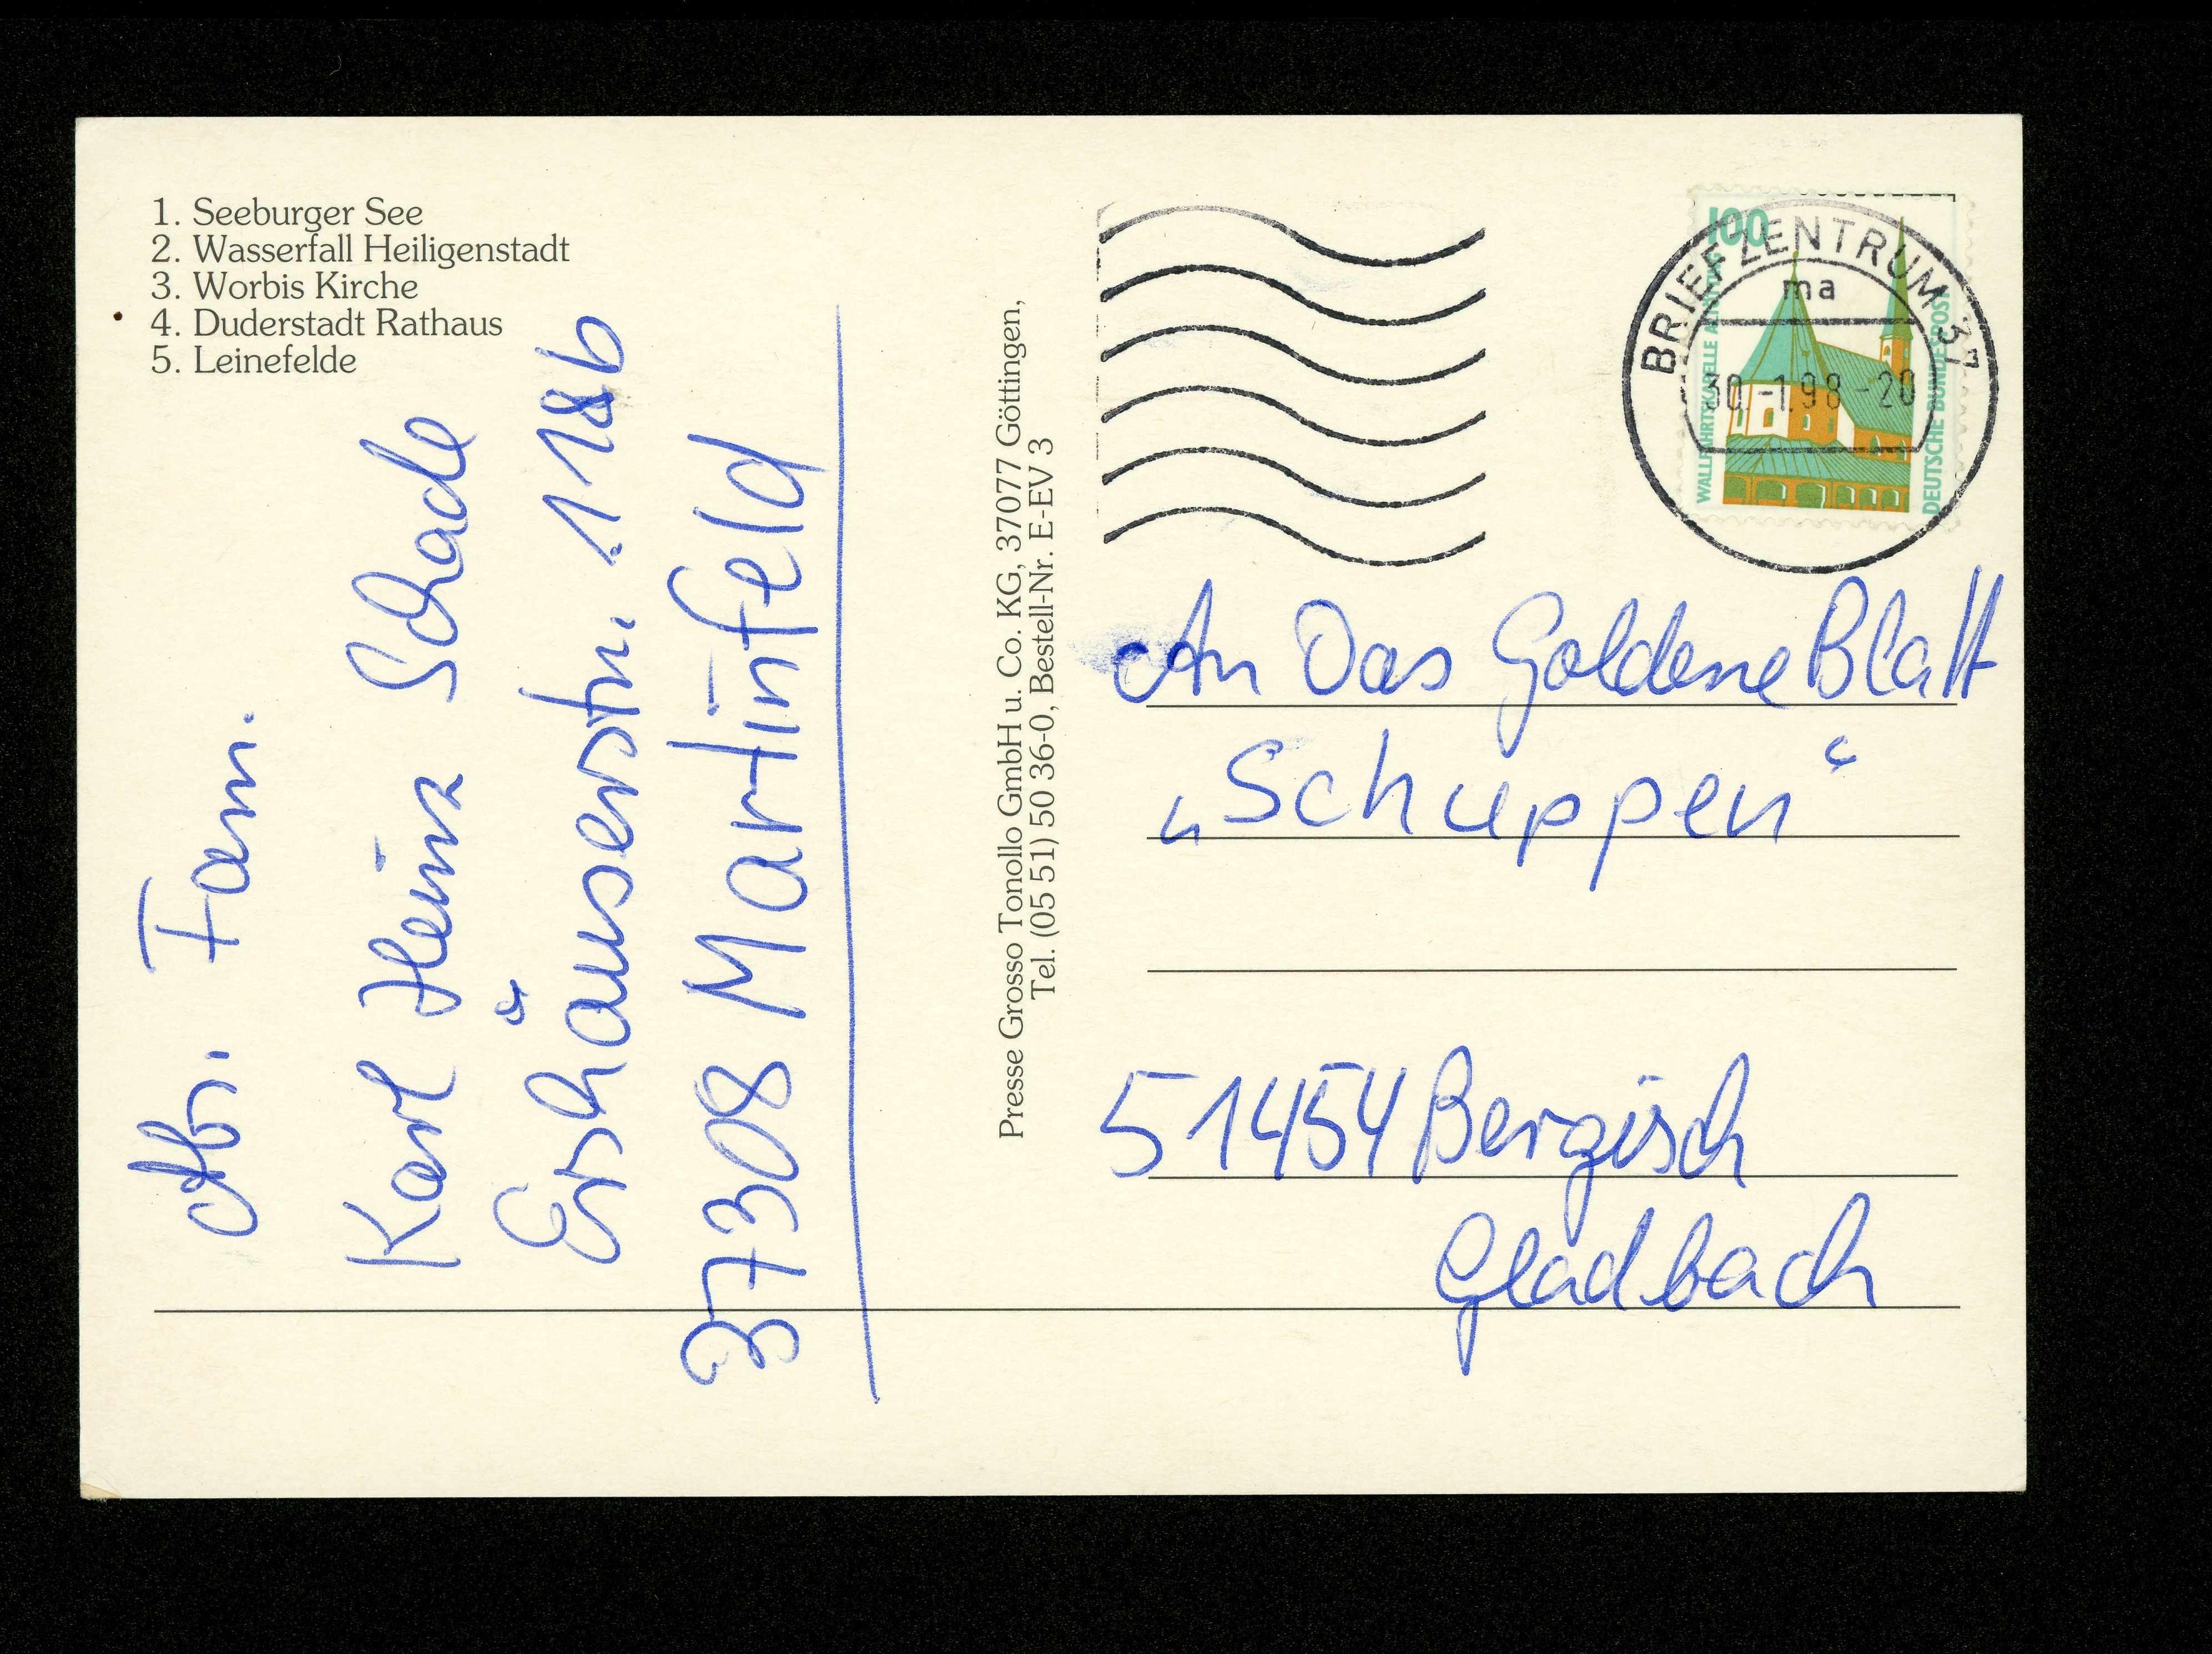 1. Seeburger See
2. Wasserfall Heiligenstadt
3. Worbis Kirche
4. Duderstadt Rathaus
5. Leinefelde
Abs. Fam.
Karl Heinz Schade
Ershäuserstr.
37308 Martinfeld
Presse Grosso Tonollo GmbH u. Co. KG, 37077 Göttingen,
Tel. (05 51) 50 36-0, Bestell-Nr. E-EV 3
100
WALLFAHRTSKAPELLE
DEUTSCHE BUNDESPOST
BRIEFZENTRUM 37
ma
30.-1.98-20
An Das Goldene Blatt
„Schuppen“
51454 Bergisch
Gladbach